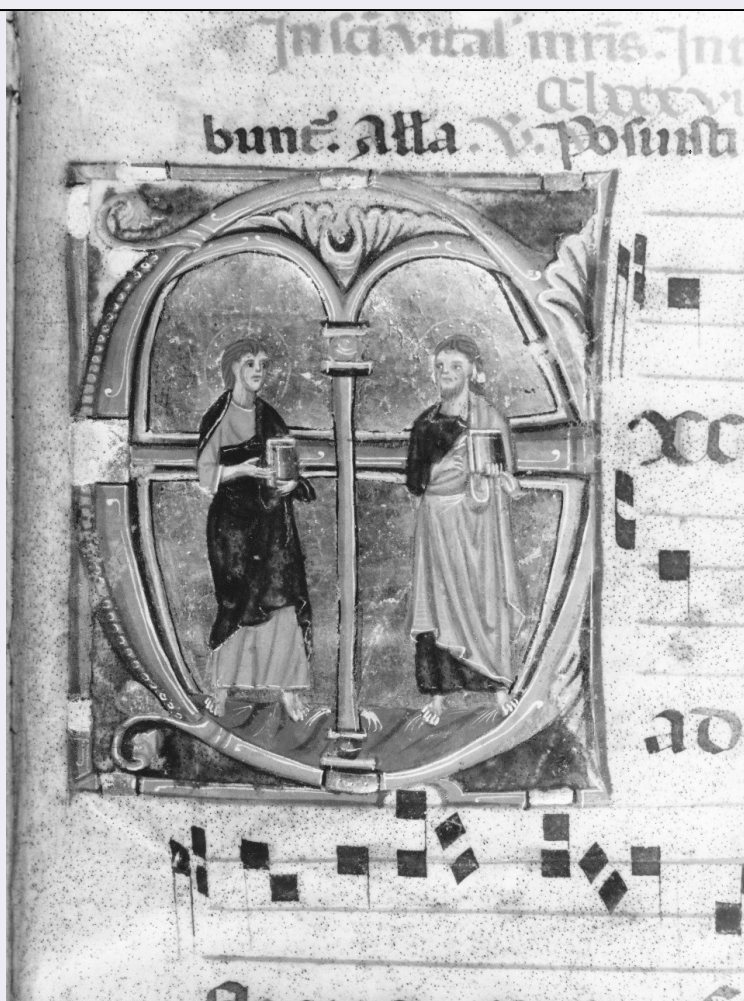 In scī vital' mr̄is. Int
Clxxxvi
bunt̄. Alla. V. Posuisti
E
xc
ad